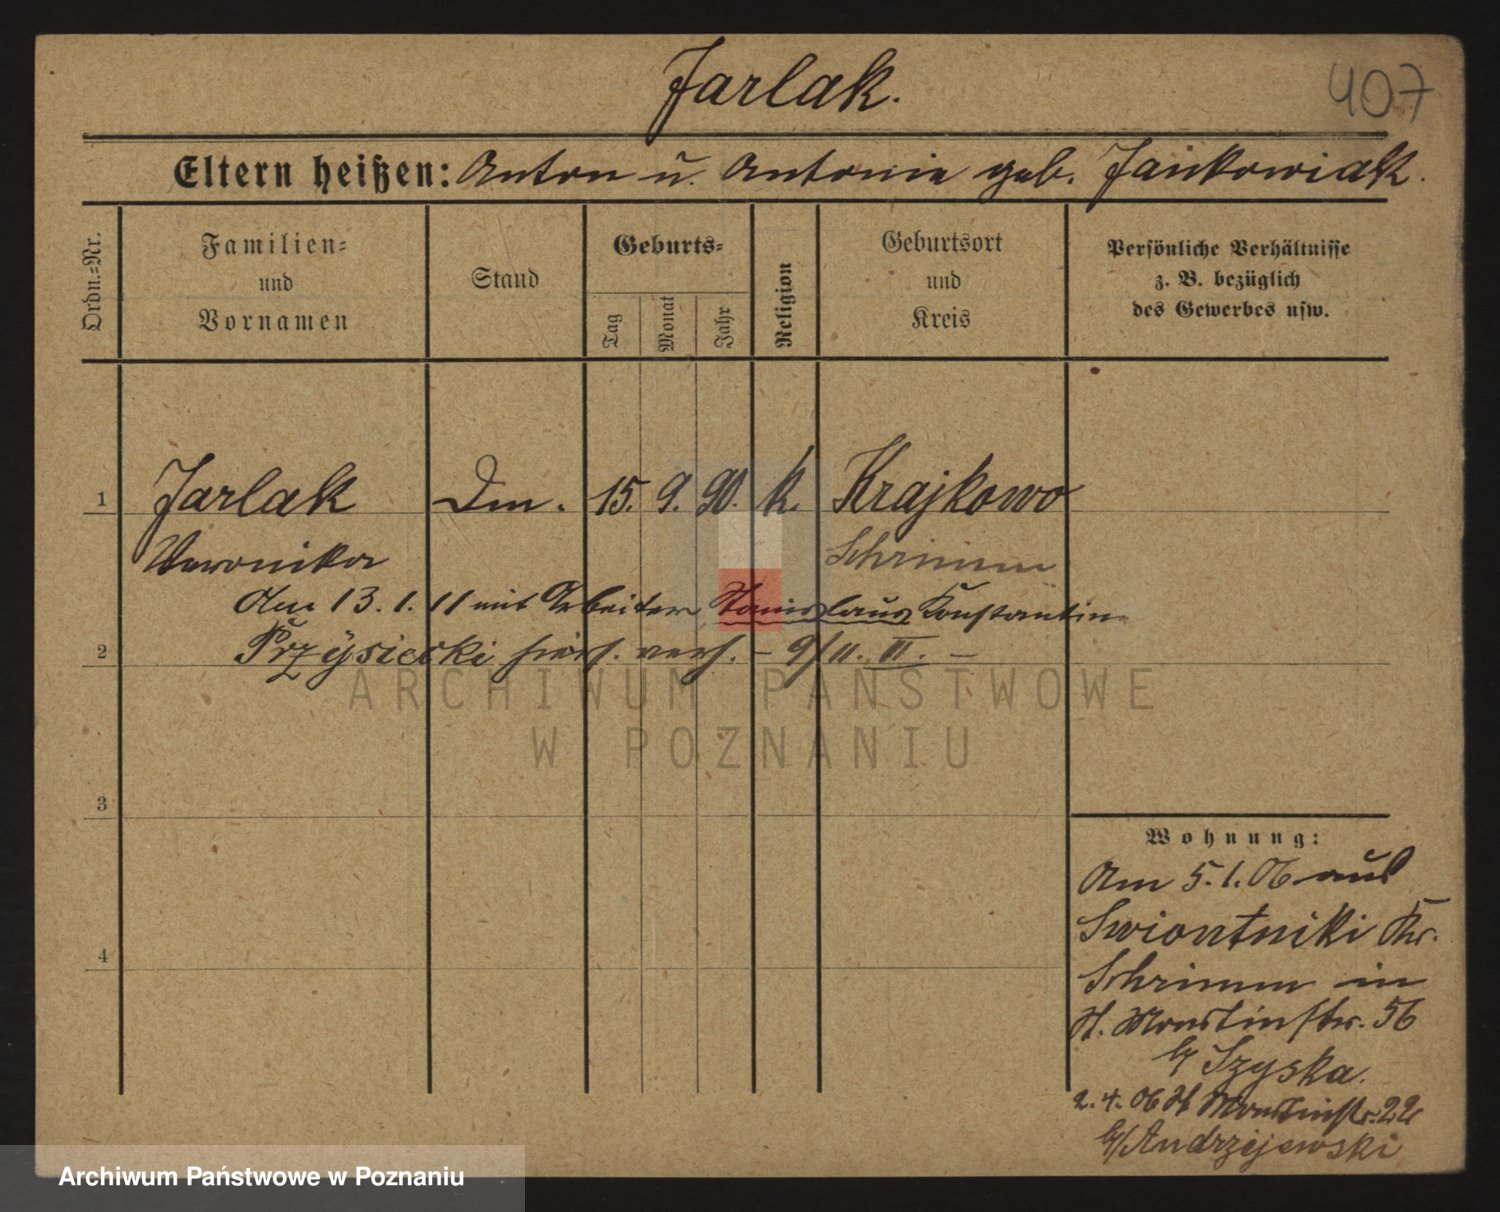 Jarlak.
407
Eltern heißen: Anton u. Antonie geb. Jankowiak.
Ordn.=Nr.
Familien=
und
Vornamen
Stand
Geburts=
Tag
Monat
Jahr
Religion
Geburtsort
und
Kreis
Persönliche Verhältnisse
z. B. bezüglich
des Gewerbes usw.
1 Jarlak Dm. 15. 9. 90. k. Krajkowo
Veronika Schrimm
Am 13.1.11 mit Arbeiter Stanislaus Konstantin
2 Przysiecki hier verh. – 9/11. II. –
3
4
Wohnung:
Am 5.1.06 aus
Swiontniki Kr.
Schrimm in
St. Martinstr. 56
b/ Szyska.
2.4.06 St Martinstr. 22
b/ Andrzejewski
ARCHIWUM PAŃSTWOWE
W POZNANIU
Archiwum Państwowe w Poznaniu